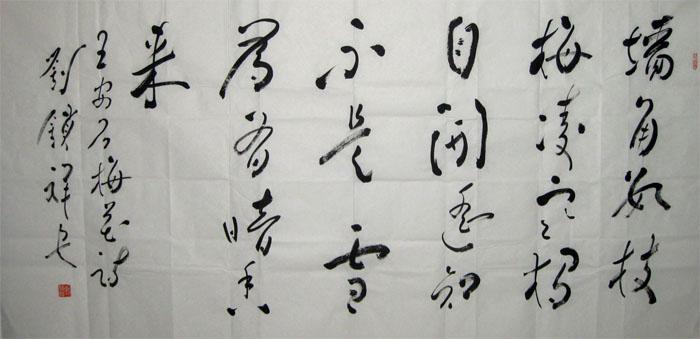 墙角数枝
梅凌寒独
自开遥知
不是雪
为有暗香
来
王安石梅花诗
刘锁祥书